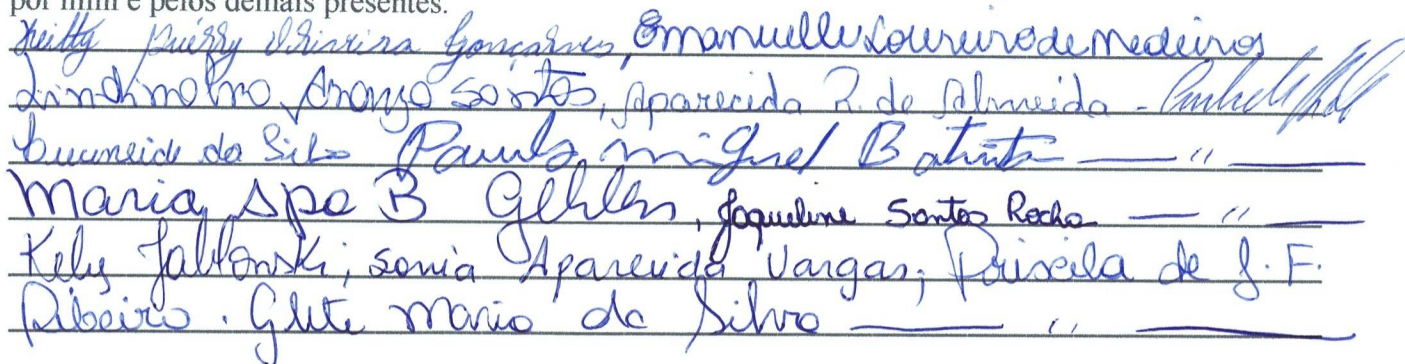 por mim e pelos demais presentes.
Gonçalves, Emanuelle Loureiro de Medeiros
Santos, Aparecida R. de Almeida -
da Silva Paulo Miguel Batista — " —
Maria Apa B Gehlen, Jaqueline Santos Rocha — " —
Kely Jablonski, Sonia Aparecida Vargas, Priscila de J. F.
Ribeiro. Glete Maria da Silva — " —